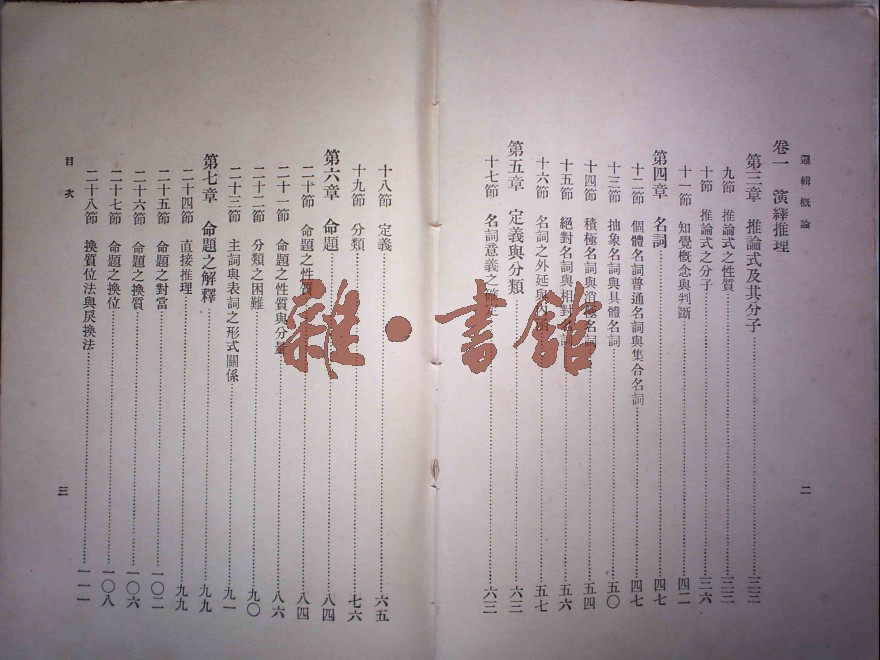 邏輯概論
卷一 演繹推理
第三章 推論式及其分子 三三
九節 推論式之性質 三三
十節 推論式之分子 三六
十一節 知覺概念與判斷 四二
第四章 名詞 四七
十二節 個體名詞普通名詞與集合名詞 四七
十三節 抽象名詞與具體名詞 五〇
十四節 積極名詞與消極名詞 五四
十五節 絕對名詞與相對名詞 五六
十六節 名詞之外延與內涵 五七
第五章 定義與分類 六三
十七節 名詞意義之確定 六三
二
十八節 定義 六五
十九節 分類 七六
第六章 命題 八四
二十節 命題之性質 八四
二十一節 命題之性質與分量 八六
二十二節 分類之困難 九〇
二十三節 主詞與表詞之形式關係 九一
第七章 命題之解釋 九九
二十四節 直接推理 九九
二十五節 命題之對當 一〇二
二十六節 命題之換質 一〇六
二十七節 命題之換位 一〇八
二十八節 換質位法與戾換法 一一一
目次
三
雜·書館